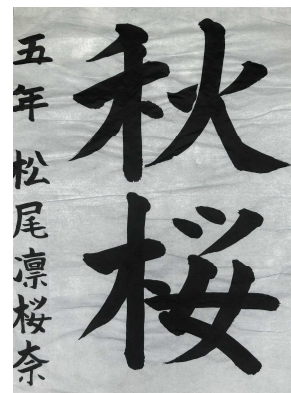 秋桜
五年 松尾凛桜奈